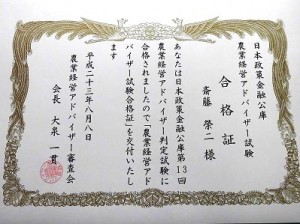 日本政策金融公庫
農業経営アドバイザー試験
合格証
斎藤榮二様
あなたは日本政策金融公庫第13回
農業経営アドバイザー判定試験に
合格されましたので「農業経営アド
バイザー試験合格証」を交付いたし
ます
平成二十三年八月八日
農業経営アドバイザー審査会
会長 大泉一貫